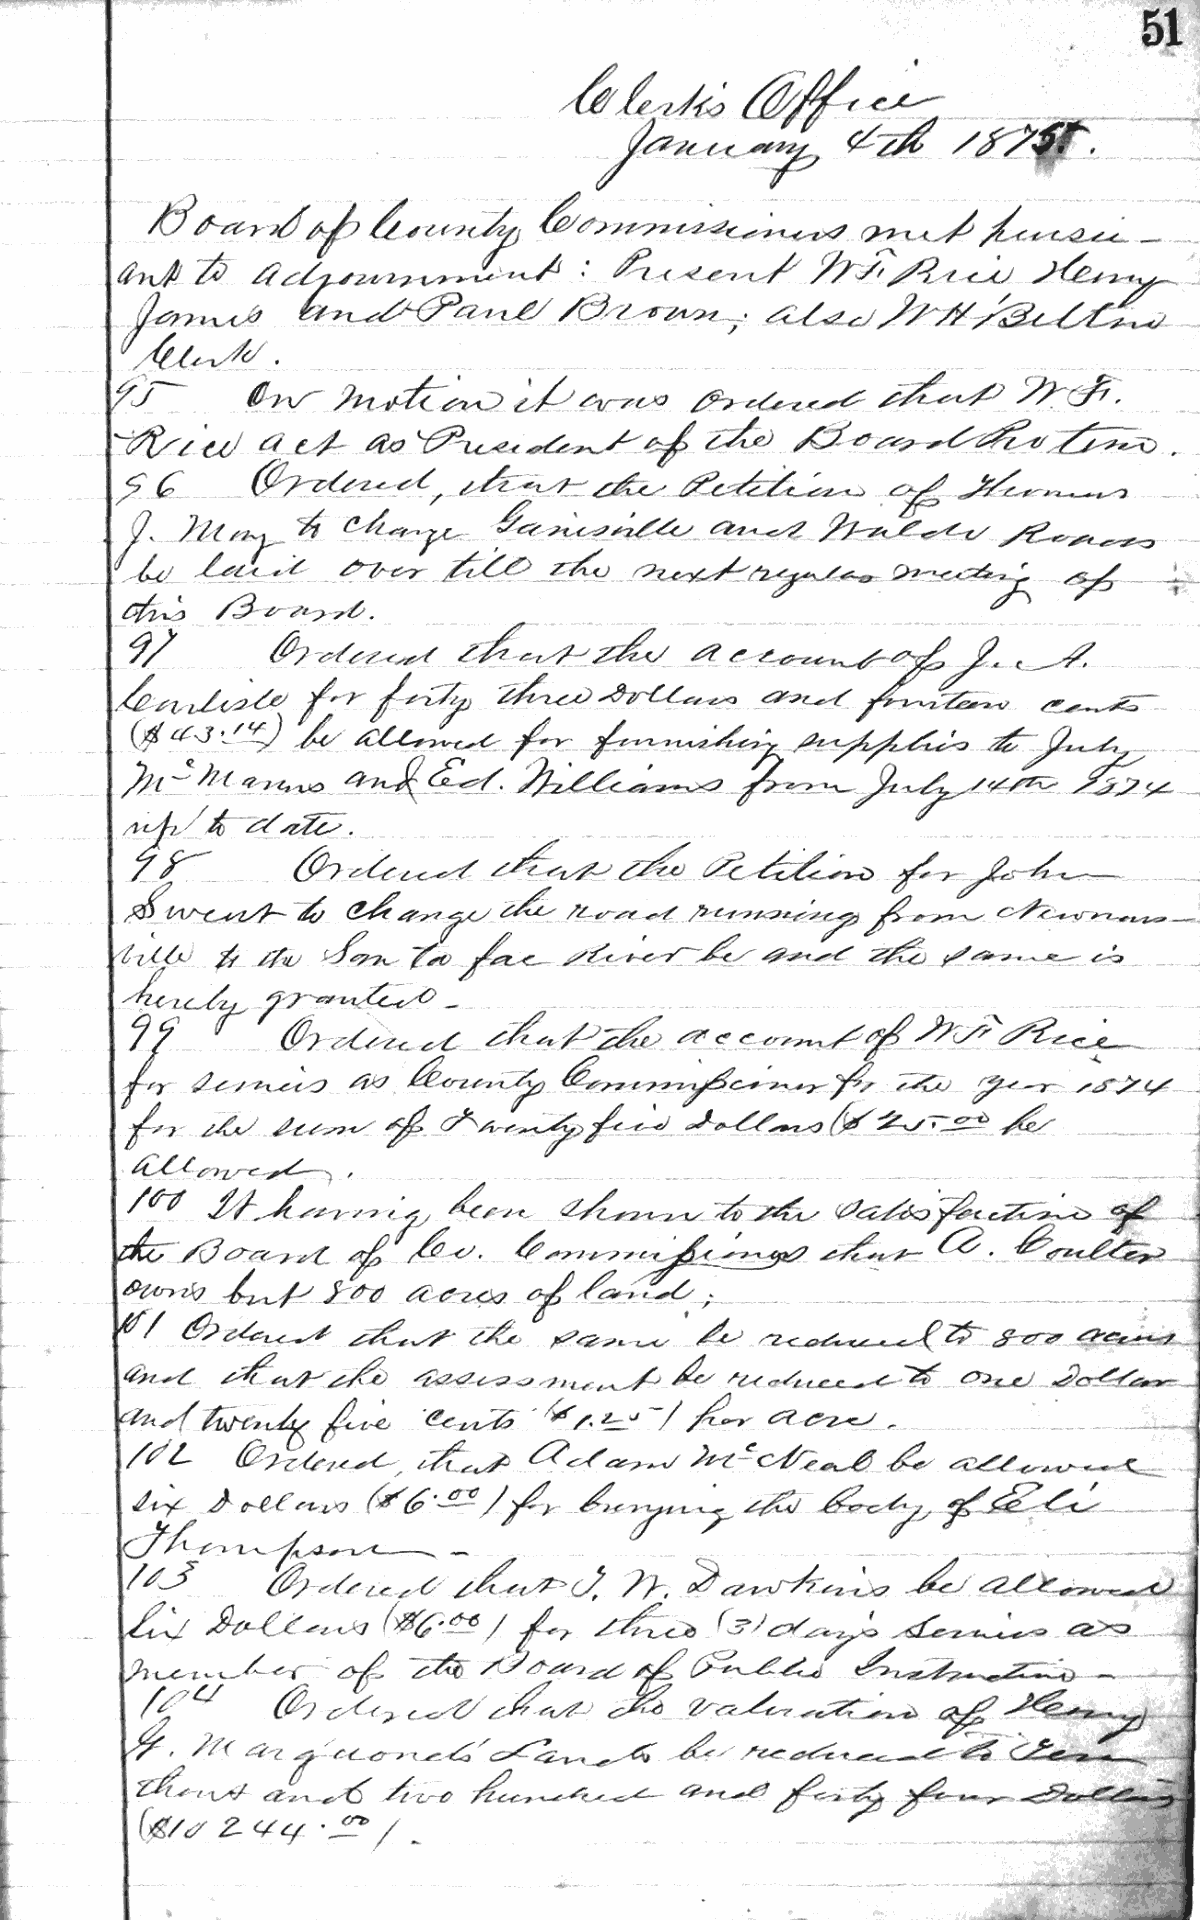 51
Clerk's Office
January 4th 1875.
Board of County Commissioners met pursu-
ant to adjournment : Present W F. Rice Henry
James and Paul Brown; also W H Belton
Clerk.
95 On motion it was ordered that W. F.
Rice act as President of the Board Pro tem.
96 Ordered, that the Petition of
J. May to change Gainesville and Waldo Roads
be laid over till the next regular meeting of
this Board.
97 Ordered that the account of J. A.
Carlisle for forty three Dollars and fourteen cents
($43.14) be allowed for furnishing supplies to July
McManus and Ed. Williams from July 14th 1874
up to date.
98 Ordered that the Petition for John
Sweat to change the road running from Newnans-
ville to the San ta fae River be and the same is
hereby granted -
99 Ordered that the account of W F. Rice
for services as County Commissioner for the year 1874
for the sum of Twenty five Dollars ($25.00 be
allowed.
100 It having been shown to the satisfaction of
the Board of Co. Commissioners that A. Coulter
owns but 800 acres of land;
101 Ordered that the same be reduced to 800 acres
and that the assessment be reduced to one Dollar
and twenty five cents ($1.25) per acre.
102 Ordered, that Adam McNeal be allowed
six Dollars ($6.00) for burying the body of Eli
Thompson -
103 Ordered that T. W. Dawkins be allowed
Six Dollars ($6.00) for three (3) day's services as
member of the Board of Public Instruction -
104 Ordered that the valuation of Henry
G. Lands be reduced to Ten
thous and two hundred and forty four Dollars
($10244.00).